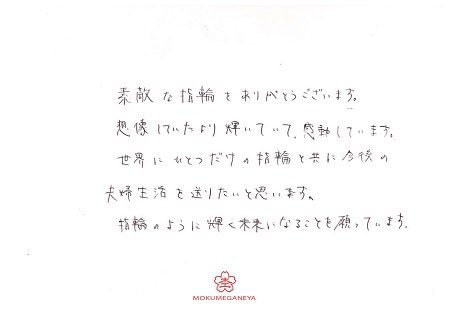 素敵な指輪をありがとうございます。
想像していたより輝いていて、感動しています。
世界にひとつだけの指輪と共に今後の
夫婦生活を送りたいと思います。
指輪のように輝く未来になることを願っています。
MOKUMEGANEYA